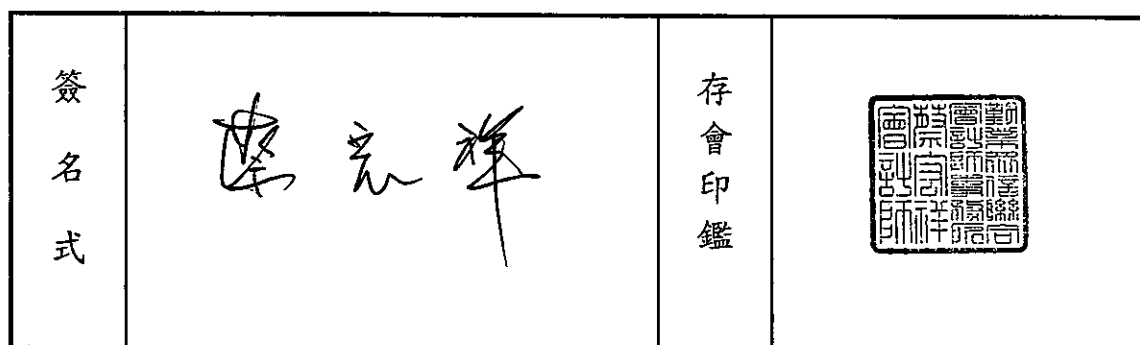 簽名式
蔡宏祥
存會印鑑
勤業眾信聯合
會計師事務所
蔡宏祥
會計師